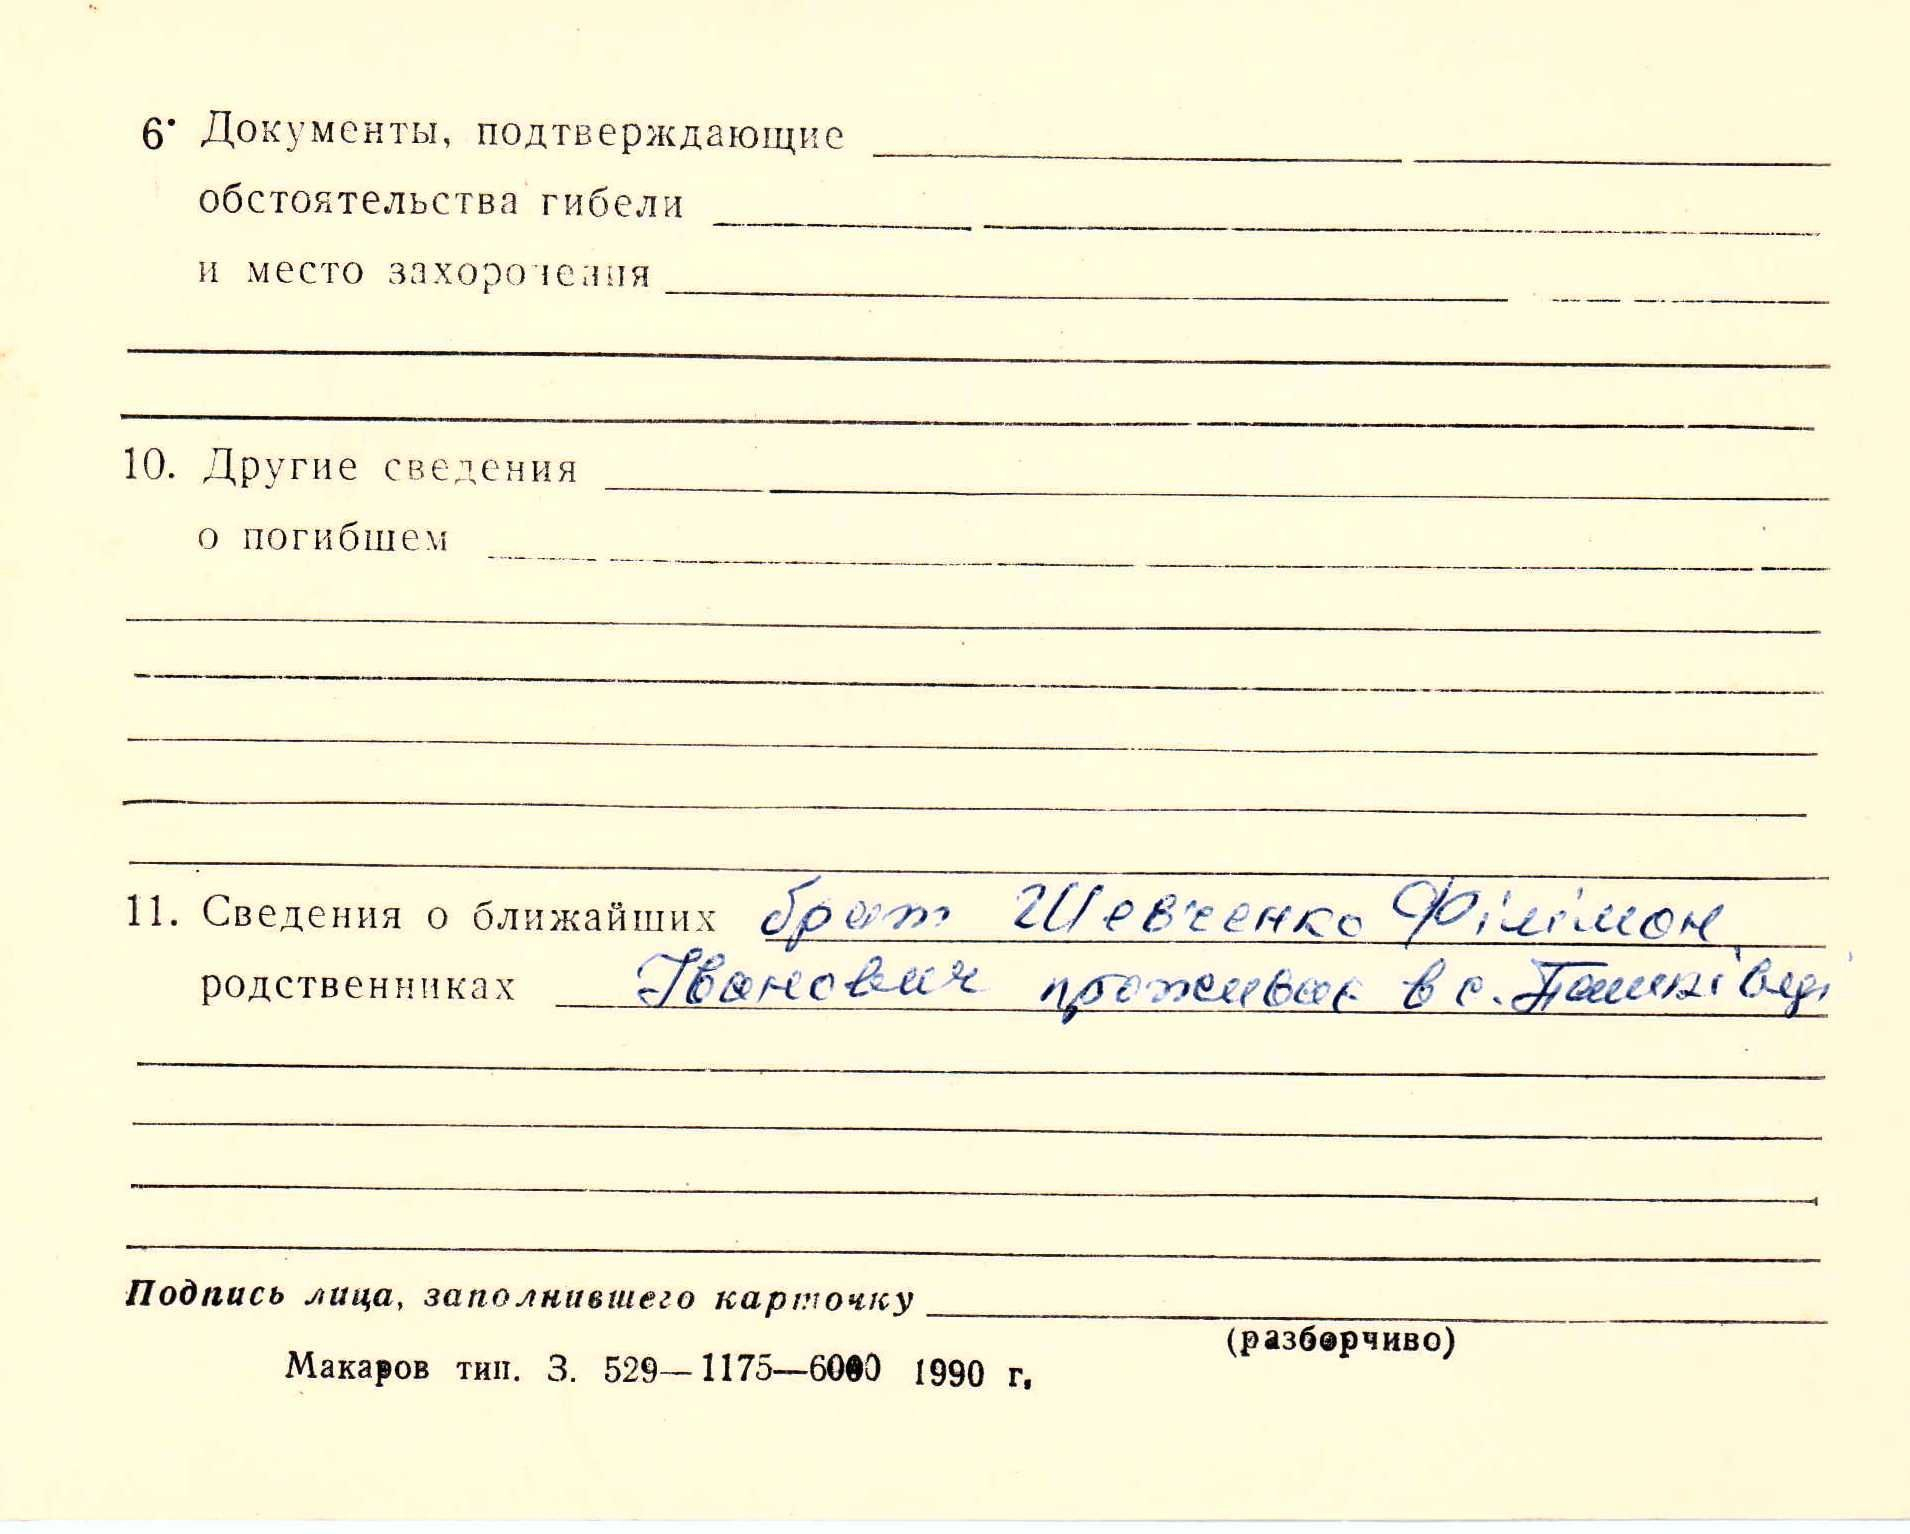 6. Документы, подтверждающие
обстоятельства гибели
и место захоронения
10. Другие сведения
о погибшем
11. Сведения о ближайших брат Шевченко Філімон
родственниках Іванович проживає в с. Пашківці
Подпись лица, заполнившего карточку
(разборчиво)
Макаров тип. З. 529—1175—6000 1990 г.